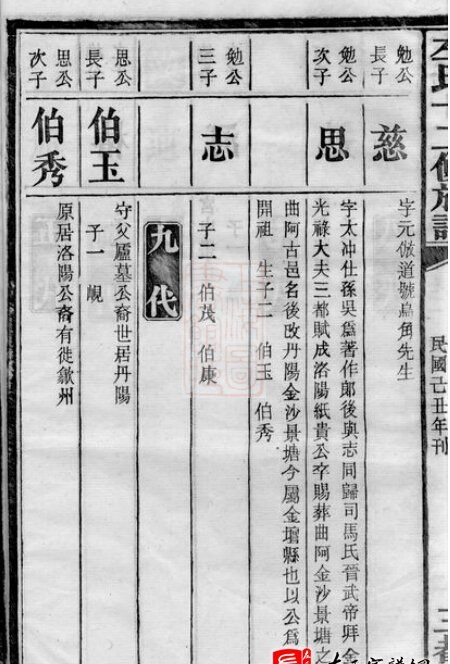 左氏十二修族譜
民國己丑年刊
勉公
長子
慈
字元倣道號烏角先生
勉公
次子
思
字太冲仕孫吳爲著作郎後與志同歸司馬氏晉武帝拜金
光祿大夫三都賦成洛陽紙貴公卒賜葬曲阿金沙景塘之
曲阿古邑名後改丹陽金沙景塘今屬金壇縣也以公爲
開祖 生子二 伯玉 伯秀
勉公
三子
志
子二 伯茂 伯康
九代
思公
長子
伯玉
守父廬墓公裔世居丹陽
子一 峴
思公
次子
伯秀
原居洛陽公裔有徙歙州